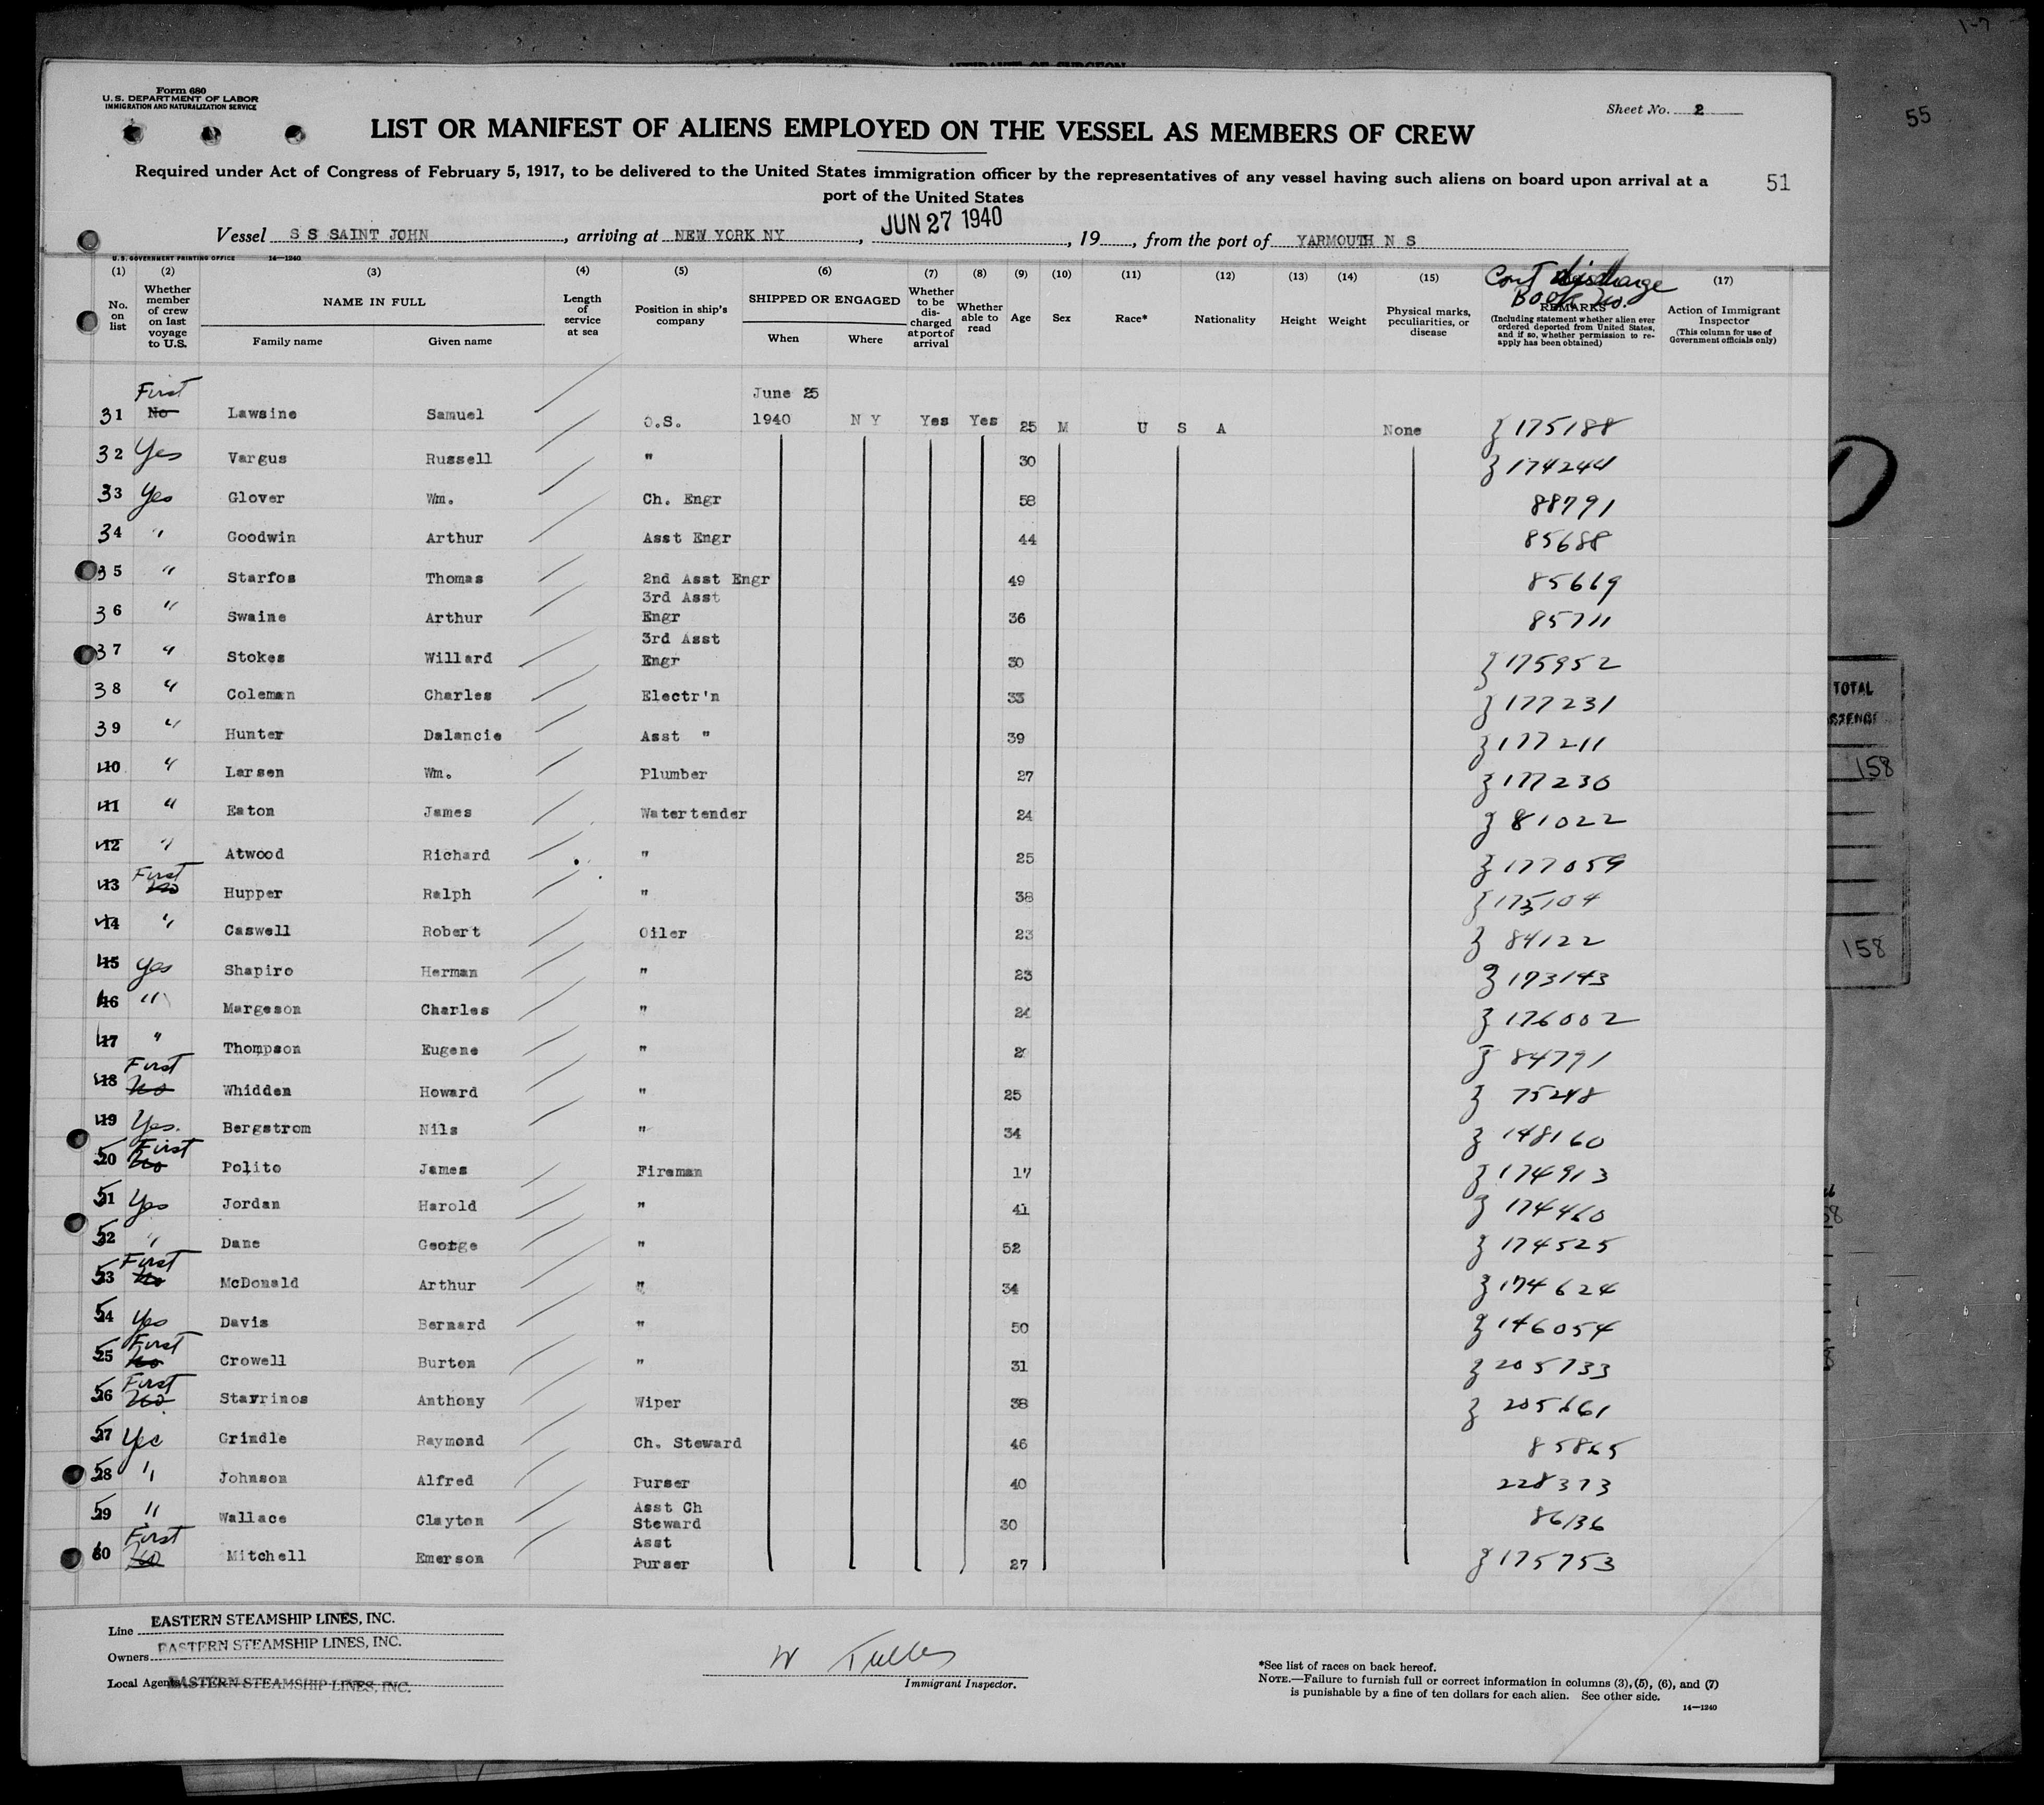 1-7
AFFIDAVIT OF SURGEON
55
Form 680
U. S. DEPARTMENT OF LABOR
IMMIGRATION AND NATURALIZATION SERVICE
Sheet No. 2
LIST OR MANIFEST OF ALIENS EMPLOYED ON THE VESSEL AS MEMBERS OF CREW
Required under Act of Congress of February 5, 1917, to be delivered to the United States immigration officer by the representatives of any vessel having such aliens on board upon arrival at a
port of the United States
51
Vessel S S SAINT JOHN, arriving at NEW YORK NY, JUN 27 1940, 19, from the port of YARMOUTH N S
U. S. GOVERNMENT PRINTING OFFICE 14—1240
(1) (2) (3) (4) (5) (6) (7) (8) (9) (10) (11) (12) (13) (14) (15) (17)
No. on list
Whether member of crew on last voyage to U.S.
NAME IN FULL
Family name Given name
Length of service at sea
Position in ship's company
SHIPPED OR ENGAGED
When Where
Whether to be discharged at port of arrival
Whether able to read
Age Sex Race* Nationality Height Weight
Physical marks, peculiarities, or disease
Cont discharge Book No.
REMARKS
(Including statement whether alien ever ordered deported from United States, and if so, whether permission to re-apply has been obtained)
Action of Immigrant Inspector
(This column for use of Government officials only)
31 First No Lawsine Samuel O.S. June 25 1940 N Y Yes Yes 25 M U S A None Z 175188
32 Yes Vargus Russell " 30 Z 174244
33 Yes Glover Wm. Ch. Engr 58 88791
34 " Goodwin Arthur Asst Engr 44 85688
35 " Starfos Thomas 2nd Asst Engr 49 85669
36 " Swaine Arthur 3rd Asst Engr 36 85711
37 " Stokes Willard 3rd Asst Engr 30 Z 175952
38 " Coleman Charles Electr'n 33 Z 177231
39 " Hunter Dalancie Asst " 39 Z 177211
40 " Larsen Wm. Plumber 27 Z 177230
41 " Eaton James Watertender 24 Z 81022
42 " Atwood Richard " 25 Z 177059
43 First No Hupper Ralph " 38 Z 175104
44 " Caswell Robert Oiler 23 Z 84122
45 Yes Shapiro Herman " 23 Z 173143
46 " Margeson Charles " 24 Z 176002
47 " Thompson Eugene " Z 84791
48 First No Whidden Howard " 25 Z 75248
49 Yes. Bergstrom Nils " 34 Z 148160
50 First No Polito James Fireman 17 Z 174913
51 Yes Jordan Harold " 41 Z 174460
52 " Dane George " 52 Z 174525
53 First No McDonald Arthur " 34 Z 174624
54 Yes Davis Bernard " 50 Z 146054
55 First No Crowell Burton " 31 Z 205733
56 First No Stavrinos Anthony Wiper 38 Z 205661
57 Yes Grindle Raymond Ch. Steward 46 85865
58 " Johnson Alfred Purser 40 228373
59 " Wallace Clayton Asst Ch Steward 30 86136
60 First No Mitchell Emerson Asst Purser 27 Z 175753
TOTAL
158
158
Line EASTERN STEAMSHIP LINES, INC.
Owners EASTERN STEAMSHIP LINES, INC.
Local Agents EASTERN STEAMSHIP LINES, INC.
Immigrant Inspector.
*See list of races on back hereof.
NOTE.—Failure to furnish full or correct information in columns (3), (5), (6), and (7)
is punishable by a fine of ten dollars for each alien. See other side.
14—1240